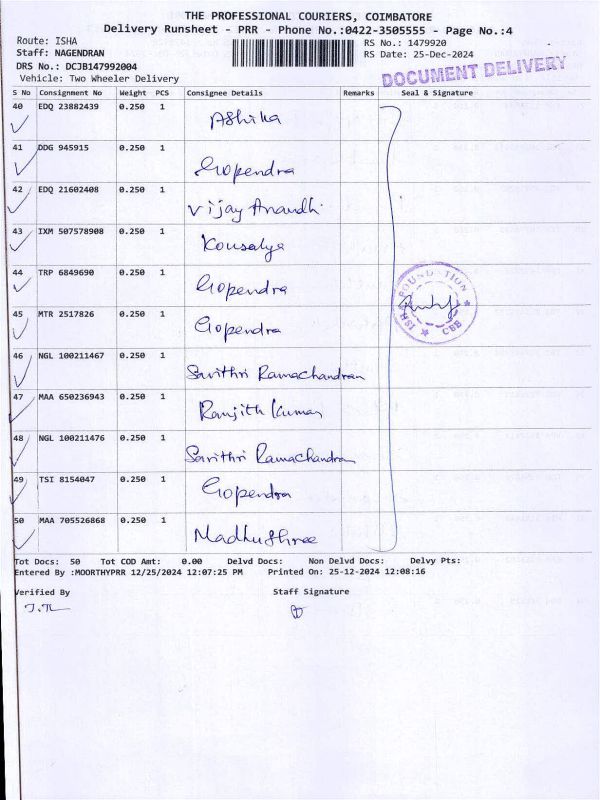 THE PROFESSIONAL COURIERS, COIMBATORE
Delivery Runsheet - PRR - Phone No.:0422-3505555 - Page No.:4
Route: ISHA RS No.: 1479920
Staff: NAGENDRAN RS Date: 25-Dec-2024
DRS No.: DCJB147992004
Vehicle: Two Wheeler Delivery
DOCUMENT DELIVERY
S No Consignment No Weight PCS Consignee Details Remarks Seal & Signature
40 EDQ 23882439 0.250 1 Ashika
41 DDG 945915 0.250 1 Gopendra
42 EDQ 21602408 0.250 1 Vijay Anandhi
43 IXM 507578908 0.250 1 Kousalya
44 TRP 6849690 0.250 1 Gopendra
45 MTR 2517826 0.250 1 Gopendra
ISH FOUNDATION CBB
46 NGL 100211467 0.250 1 Savithri Ramachandran
47 MAA 650236943 0.250 1 Ranjith Kumar
48 NGL 100211476 0.250 1 Savithri Ramachandran
49 TSI 8154047 0.250 1 Gopendra
50 MAA 705526868 0.250 1 Madhushree
Tot Docs: 50 Tot COD Amt: 0.00 Delvd Docs: Non Delvd Docs: Delvy Pts:
Entered By :MOORTHYPRR 12/25/2024 12:07:25 PM Printed On: 25-12-2024 12:08:16
Verified By Staff Signature